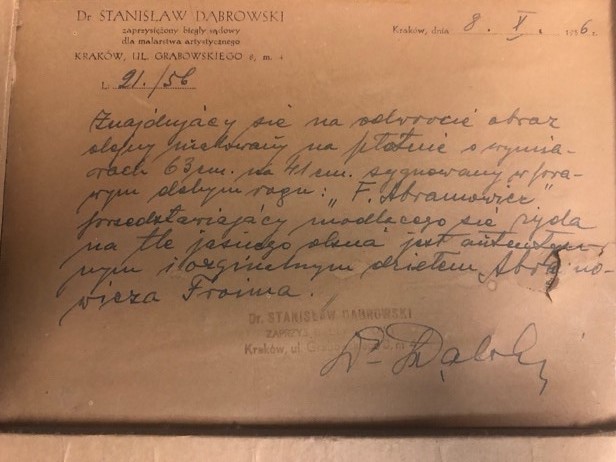 Dr STANISŁAW DĄBROWSKI
zaprzysiężony biegły sądowy
dla malarstwa artystycznego
KRAKÓW, UL. GRABOWSKIEGO 6, m. 4
Kraków, dnia 8. X. 1956 r.
L. 21./56
Znajdujący się na odwrocie obraz
olejny malowany na płótnie o wymia-
rach 63 cm. na 41 cm. sygnowany w pra-
wym dolnym rogu: „F. Abramowicz"
przedstawiający modlącego się żyda
na tle jasnego okna jest autentycz-
nym i orginalnym dziełem Abramo-
wicza Froima.
Dr. STANISŁAW DĄBROWSKI
ZAPRZYS.
Kraków, ul. m. 4
Dr Dąbrowski